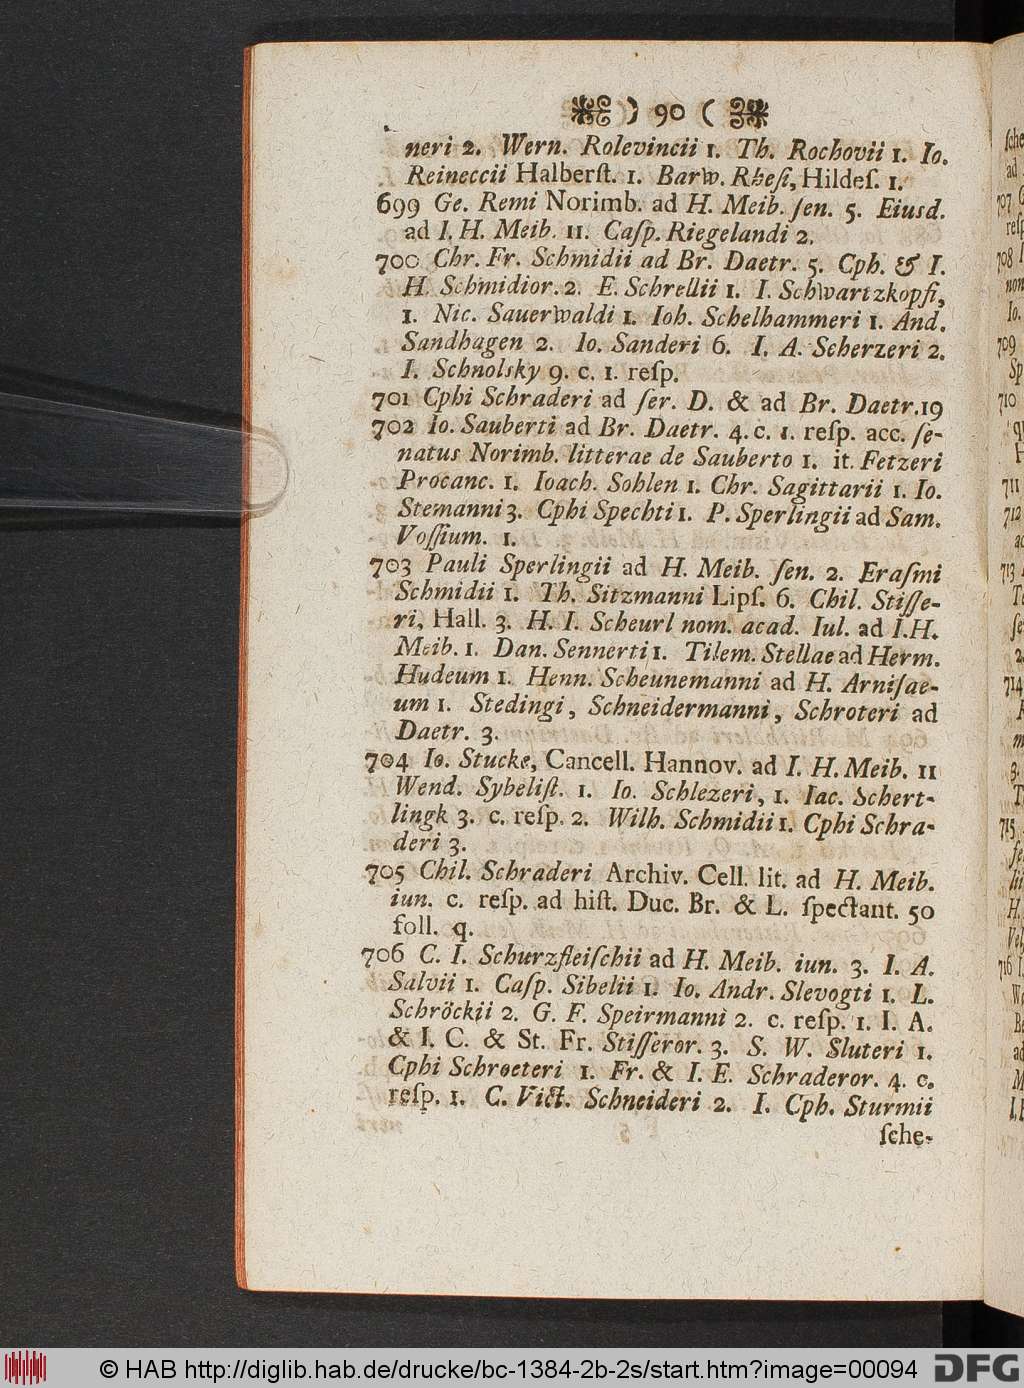 ) 90 (
neri 2. Wern. Rolevincii 1. Th. Rochovii 1. Io.
Reineccii Halberſt. 1. Barw. Rheſi, Hildeſ. 1.
699 Ge. Remi Norimb. ad H. Meib. ſen. 5. Eiusd.
ad I. H. Meib. 11. Caſp. Riegelandi 2.
700 Chr. Fr. Schmidii ad Br. Daetr. 5. Cph. & I.
H. Schmidior. 2. E. Schrellii 1. I. Schwartzkopfi,
1. Nic. Sauerwaldi 1. Ioh. Schelhammeri 1. And.
Sandhagen 2. Io. Sanderi 6. I. A. Scherzeri 2.
I. Schnolsky 9. c. 1. reſp.
701 Cphi Schraderi ad ſer. D. & ad Br. Daetr. 19
702 Io. Sauberti ad Br. Daetr. 4. c. 1. reſp. acc. ſe-
natus Norimb. litterae de Sauberto 1. it. Fetzeri
Procanc. 1. Ioach. Sohlen 1. Chr. Sagittarii 1. Io.
Stemanni 3. Cphi Spechti 1. P. Sperlingii ad Sam.
Voſſium. 1.
703 Pauli Sperlingii ad H. Meib. ſen. 2. Eraſmi
Schmidii 1. Th. Sitzmanni Lipſ. 6. Chil. Stiſſe-
ri, Hall. 3. H. I. Scheurl nom. acad. Iul. ad I. H.
Meib. 1. Dan. Sennerti 1. Tilem. Stellae ad Herm.
Hudeum 1. Henn. Scheunemanni ad H. Arniſae-
um 1. Stedingi, Schneidermanni, Schroteri ad
Daetr. 3.
704 Io. Stucke, Cancell. Hannov. ad I. H. Meib. 11
Wend. Sybeliſt. 1. Io. Schlezeri, 1. Iac. Schert-
lingk 3. c. reſp. 2. Wilh. Schmidii 1. Cphi Schra-
deri 3.
705 Chil. Schraderi Archiv. Cell. lit. ad H. Meib.
iun. c. reſp. ad hiſt. Duc. Br. & L. ſpectant. 50
foll. q.
706 C. I. Schurzfleiſchii ad H. Meib. iun. 3. I. A.
Salvii 1. Caſp. Sibelii 1. Io. Andr. Slevogti 1. L.
Schröckii 2. G. F. Speirmanni 2. c. reſp. 1. I. A.
& I. C. & St. Fr. Stiſſeror. 3. S. W. Sluteri 1.
Cphi Schroeteri 1. Fr. & I. E. Schraderor. 4. c.
reſp. 1. C. Vict. Schneideri 2. I. Cph. Sturmii
ſche-
© HAB http://diglib.hab.de/drucke/bc-1384-2b-2s/start.htm?image=00094
DFG